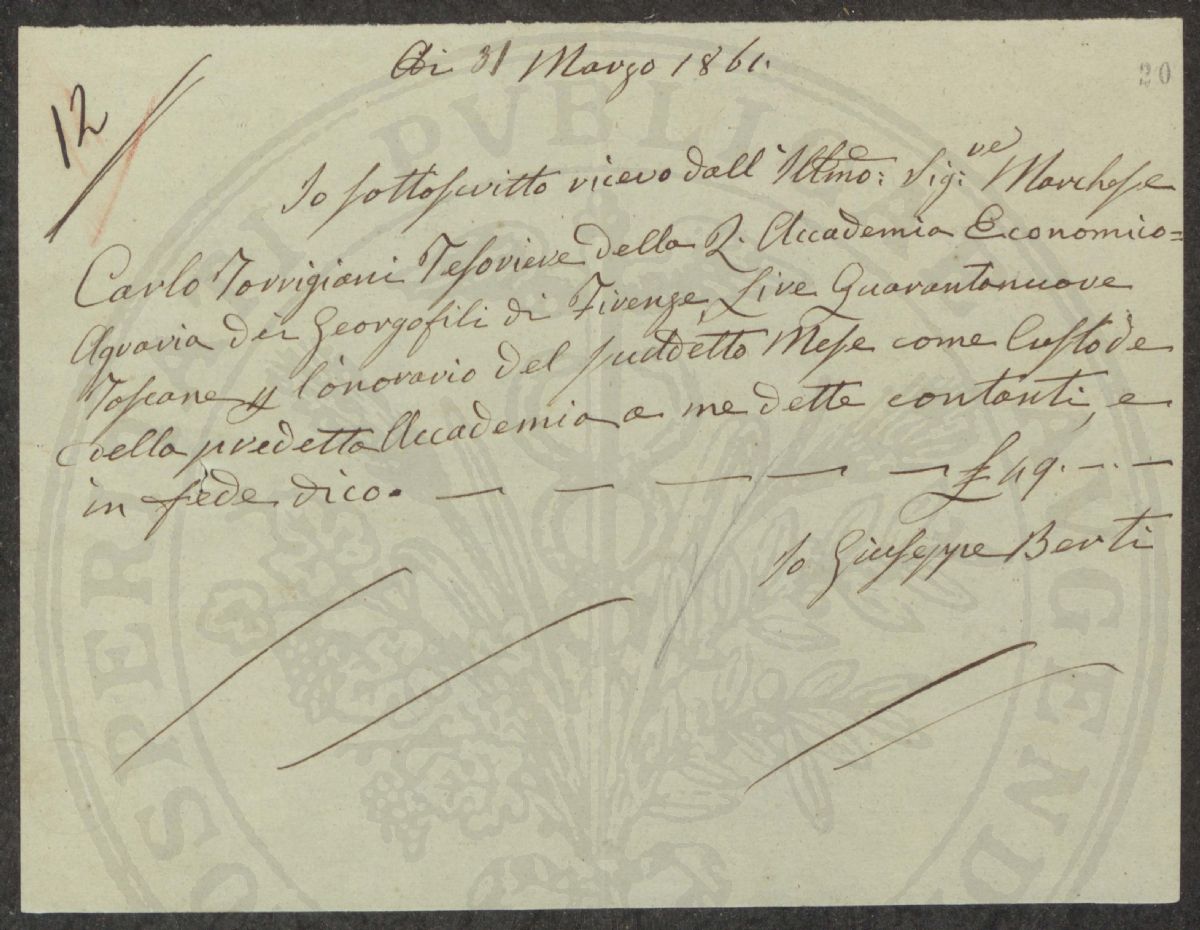 Adi 31 Marzo 1861.
20
12
Io sottoscritto ricevo dall' Illmo: Sig:re Marchese
Carlo Torrigiani Tesoriere della R. Accademia Economico=
Agraria dei Georgofili di Firenze, Lire Quarantanuove
Toscane p l'onorario del suddetto Mese come Custode
della predetta Accademia a me dette contanti, e
in fede dico. — — — — — £ 49. — . —
Io Giuseppe Berti
PROSPERITATI PVBLICAE AVGENDAE